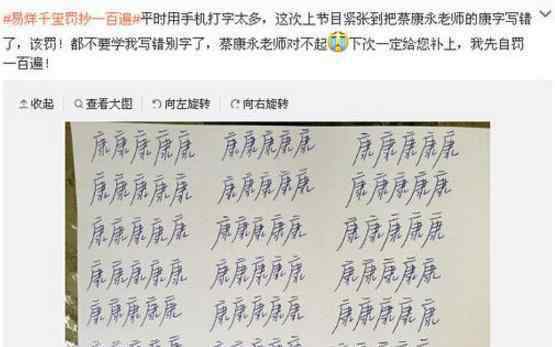 #易烊千玺罚抄一百遍#平时用手机打字太多，这次上节目紧张到把蔡康永老师的康字写错
了，该罚！都不要学我写错别字了，蔡康永老师对不起😭下次一定给您补上，我先自罚
一百遍！
收起 查看大图 向左旋转 向右旋转
康康康康康 康康康康康 康康康康康
康康康康康 康康康康康 康康康康康
康康康康康 康康康康康 康康康康康
康康康康康 康康康康康 康康康康康
康康康康康 康康康康康 康康康康康